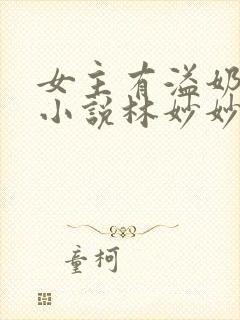 女主有溢奶
小說林妙妙
童柯